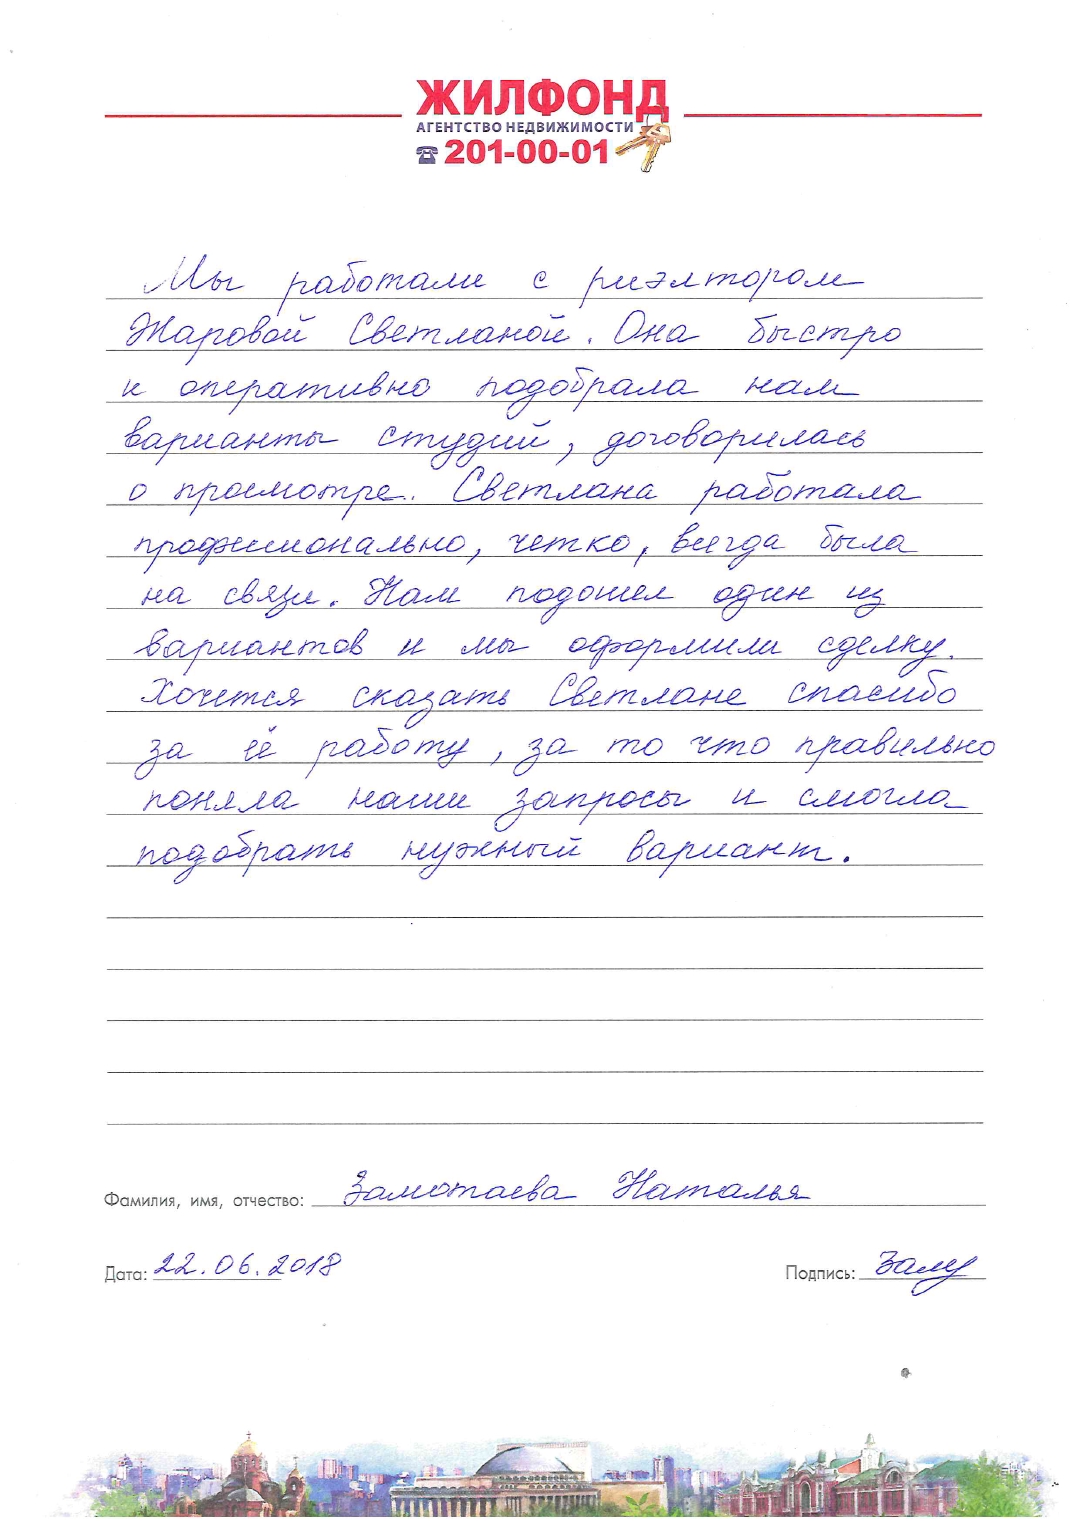 ЖИЛФОНД
АГЕНТСТВО НЕДВИЖИМОСТИ
201-00-01
Мы работали с риэлтором
Жаровой Светланой. Она быстро
и оперативно подобрала нам
варианты студий, договорилась
о просмотре. Светлана работала
профессионально, четко, всегда была
на связи. Нам подошел один из
вариантов и мы оформили сделку.
Хочется сказать Светлане спасибо
за её работу, за то что правильно
поняла наши запросы и смогла
подобрать нужный вариант.
Фамилия, имя, отчество: Замотаева Наталья
Дата: 22.06.2018 Подпись: